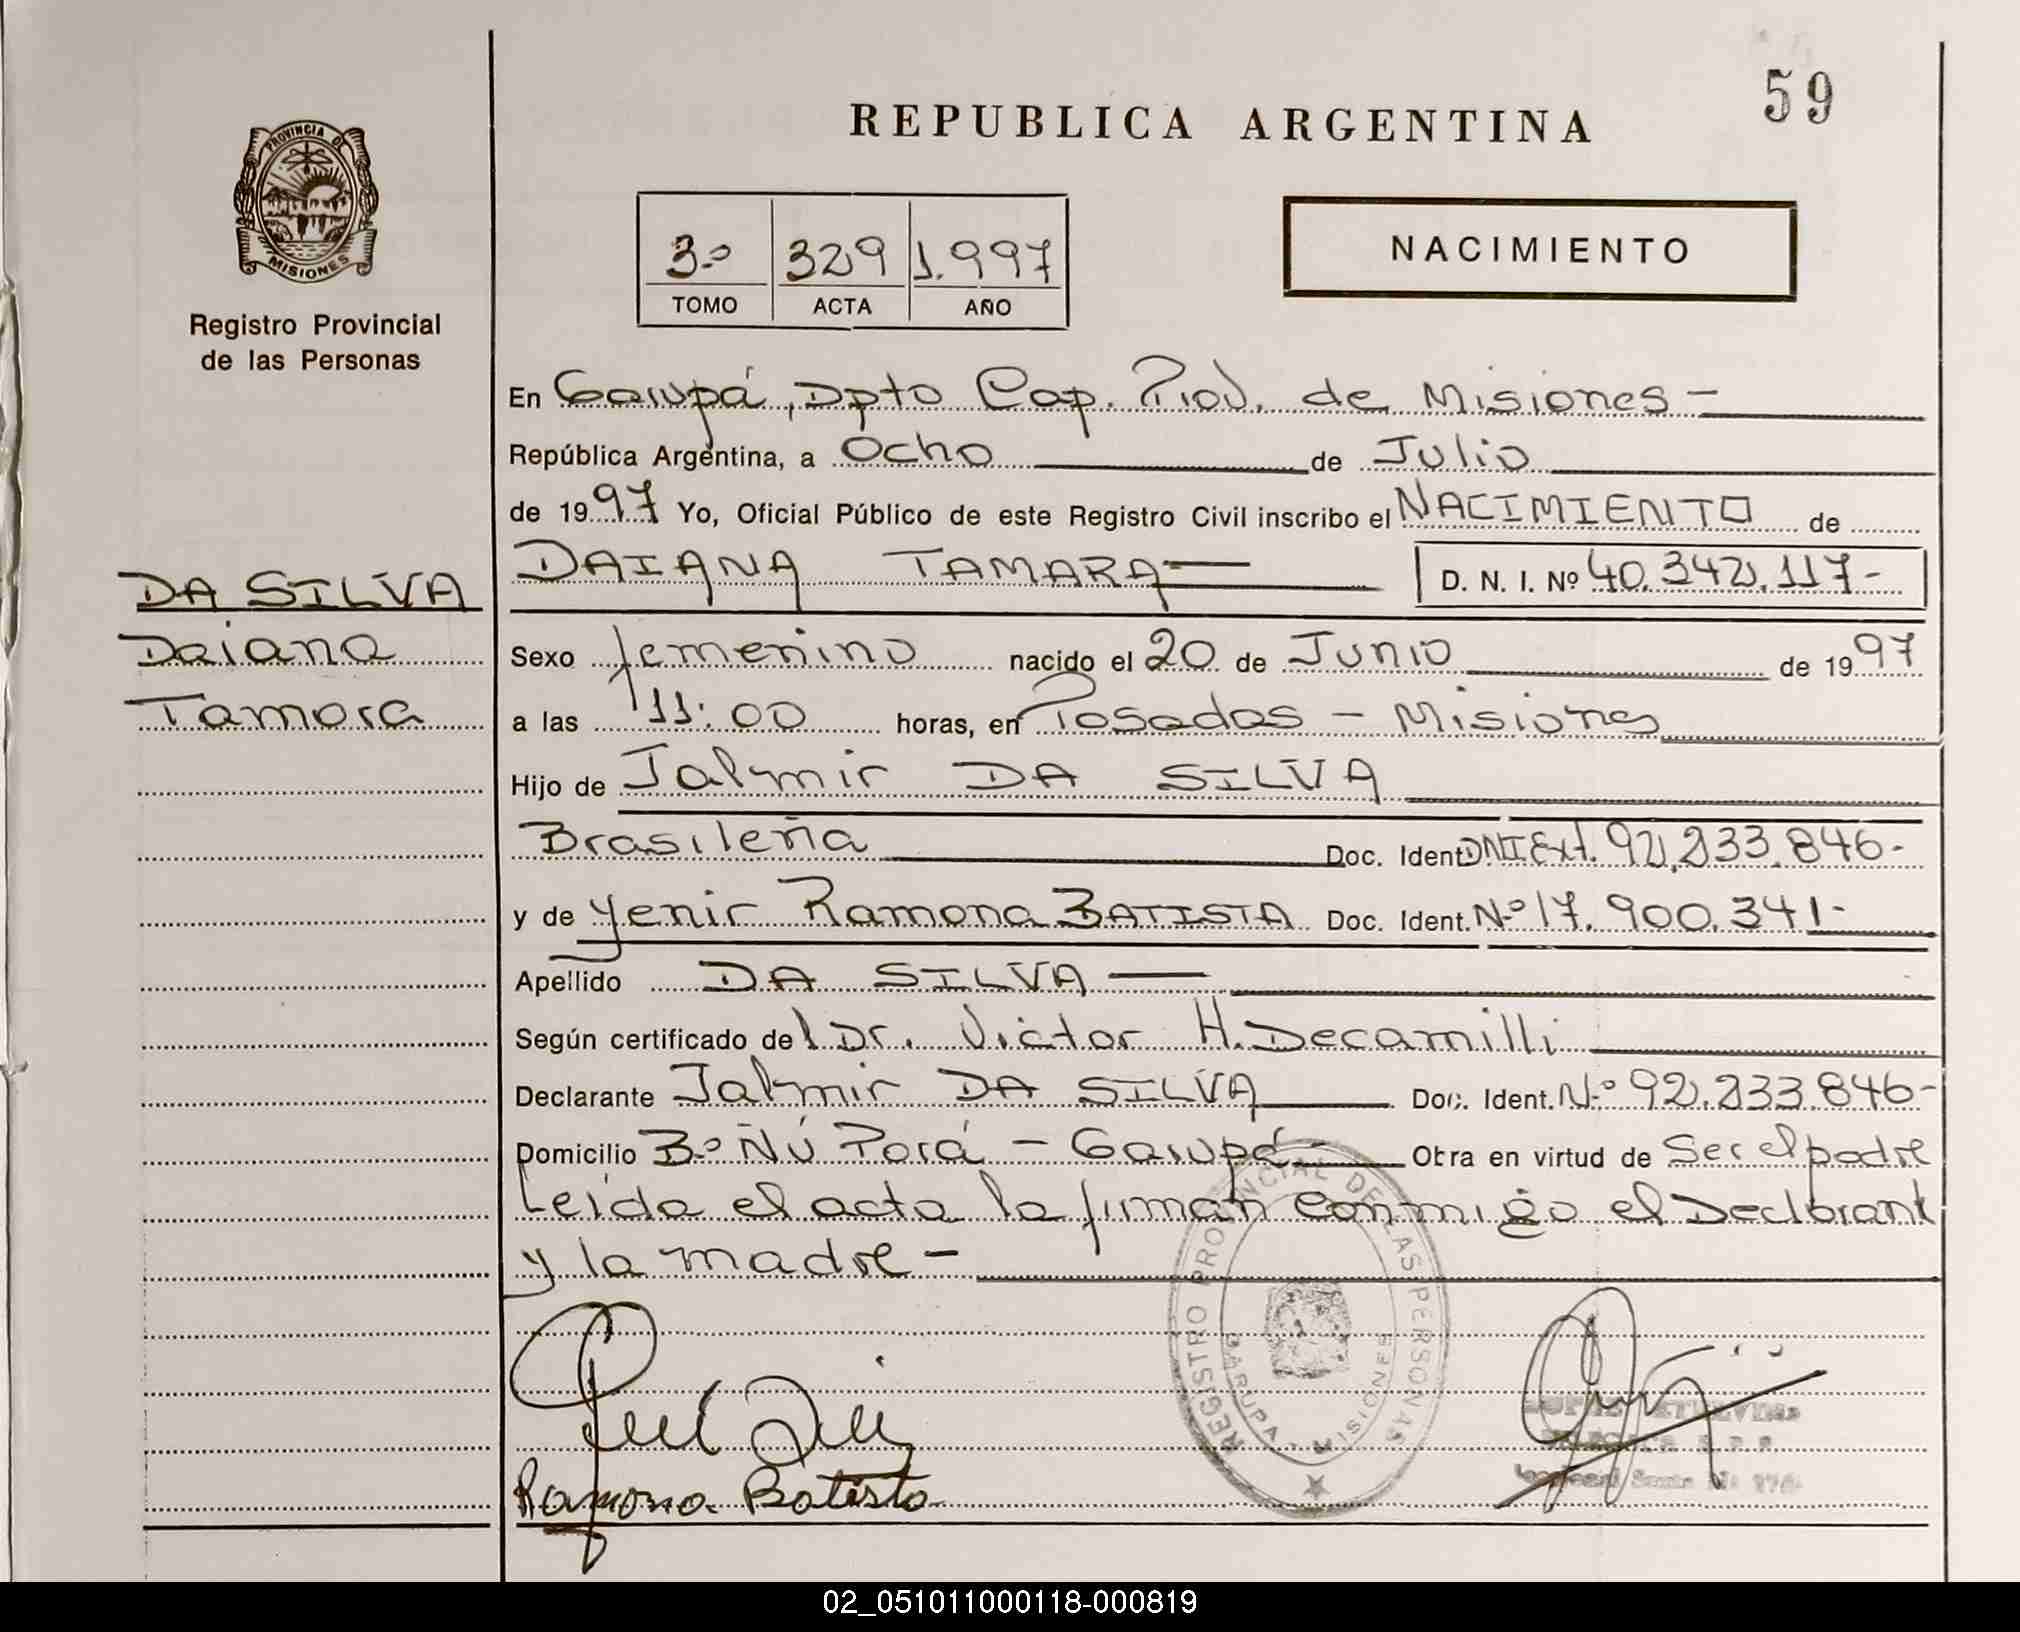 59
REPUBLICA ARGENTINA
PROVINCIA DE
MISIONES
Registro Provincial
de las Personas
3º 329 1.997
TOMO ACTA AÑO
NACIMIENTO
En Garupá, Dpto Cap. Prov. de Misiones -
República Argentina, a Ocho de Julio
de 1997 Yo, Oficial Público de este Registro Civil inscribo el NACIMIENTO de
DAIANA TAMARA D. N. I. Nº 40.342.117-
DA SILVA
Daiana
Tamara
Sexo femenino nacido el 20 de Junio de 1997
a las 11:00 horas, en Posadas - Misiones
Hijo de Jalmir DA SILVA
Brasileña Doc. Ident. DNI Ext. 92.233.846-
y de Yenir Ramona BATISTA Doc. Ident. Nº 17.900.341-
Apellido DA SILVA
Según certificado del Dr. Victor H. Decamilli
Declarante Jalmir DA SILVA Doc. Ident. Nº 92.233.846-
Domicilio Bº Ñú Porá - Garupá Obra en virtud de Ser el padre
Leida el acta la firman conmigo el Declarant
y la madre -
REGISTRO PROVINCIAL DE LAS PERSONAS
GARUPA - MISIONES
Ramona Batista
02_051011000118-000819